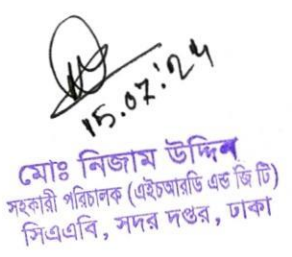 15.07.'24
মোঃ নিজাম উদ্দিন
সহকারী পরিচালক (এইচআরডি এন্ড জি টি)
সিএএবি, সদর দপ্তর, ঢাকা